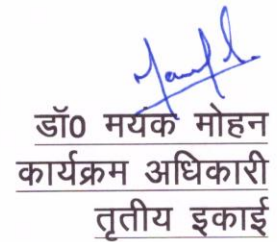 डॉ0 मयंक मोहन
कार्यक्रम अधिकारी
तृतीय इकाई